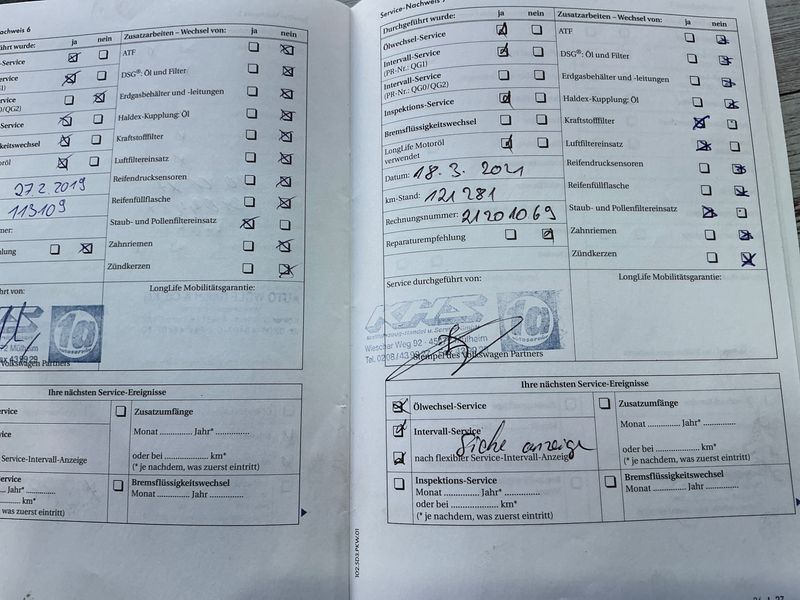 Nachweis 6
führt wurde: ja nein
Zusatzarbeiten – Wechsel von: ja nein
ATF
DSG®: Öl und Filter
Erdgasbehälter und -leitungen
Haldex-Kupplung: Öl
Kraftstofffilter
Luftfiltereinsatz
Reifendrucksensoren
Reifenfüllflasche
Staub- und Pollenfiltereinsatz
Zahnriemen
Zündkerzen
27.2.2019
113109
LongLife Mobilitätsgarantie:
KHS
1a
Volkswagen Partners
Ihre nächsten Service-Ereignisse
Service-Intervall-Anzeige
Zusatzumfänge
Monat .............. Jahr* ...............
oder bei .................... km*
(* je nachdem, was zuerst eintritt)
Bremsflüssigkeitswechsel
Monat ............. Jahr .............
Jahr*
km*
was zuerst eintritt)
Service-Nachweis 7
Durchgeführt wurde: ja nein
Ölwechsel-Service
Intervall-Service
(PR-Nr.: QG1)
Intervall-Service
(PR-Nr.: QG0/QG2)
Inspektions-Service
Bremsflüssigkeitswechsel
LongLife Motoröl
verwendet
Datum: 18.3.2021
km-Stand: 121 281
Rechnungsnummer: 21201069
Reparaturempfehlung
Zusatzarbeiten – Wechsel von: ja nein
ATF
DSG®: Öl und Filter
Erdgasbehälter und -leitungen
Haldex-Kupplung: Öl
Kraftstofffilter
Luftfiltereinsatz
Reifendrucksensoren
Reifenfüllflasche
Staub- und Pollenfiltereinsatz
Zahnriemen
Zündkerzen
Service durchgeführt von:
LongLife Mobilitätsgarantie:
KHS
1a
Wiescher Weg 92
Tel. 0208/43
Stempel des Volkswagen Partners
Ihre nächsten Service-Ereignisse
Ölwechsel-Service
Intervall-Service
Siehe anzeige
nach flexibler Service-Intervall-Anzeige
Inspektions-Service
Monat ............. Jahr* .............
oder bei .................. km*
(* je nachdem, was zuerst eintritt)
Zusatzumfänge
Monat .............. Jahr* ...............
oder bei .................... km*
(* je nachdem, was zuerst eintritt)
Bremsflüssigkeitswechsel
Monat ............. Jahr .............
102.5D3.PKW.01